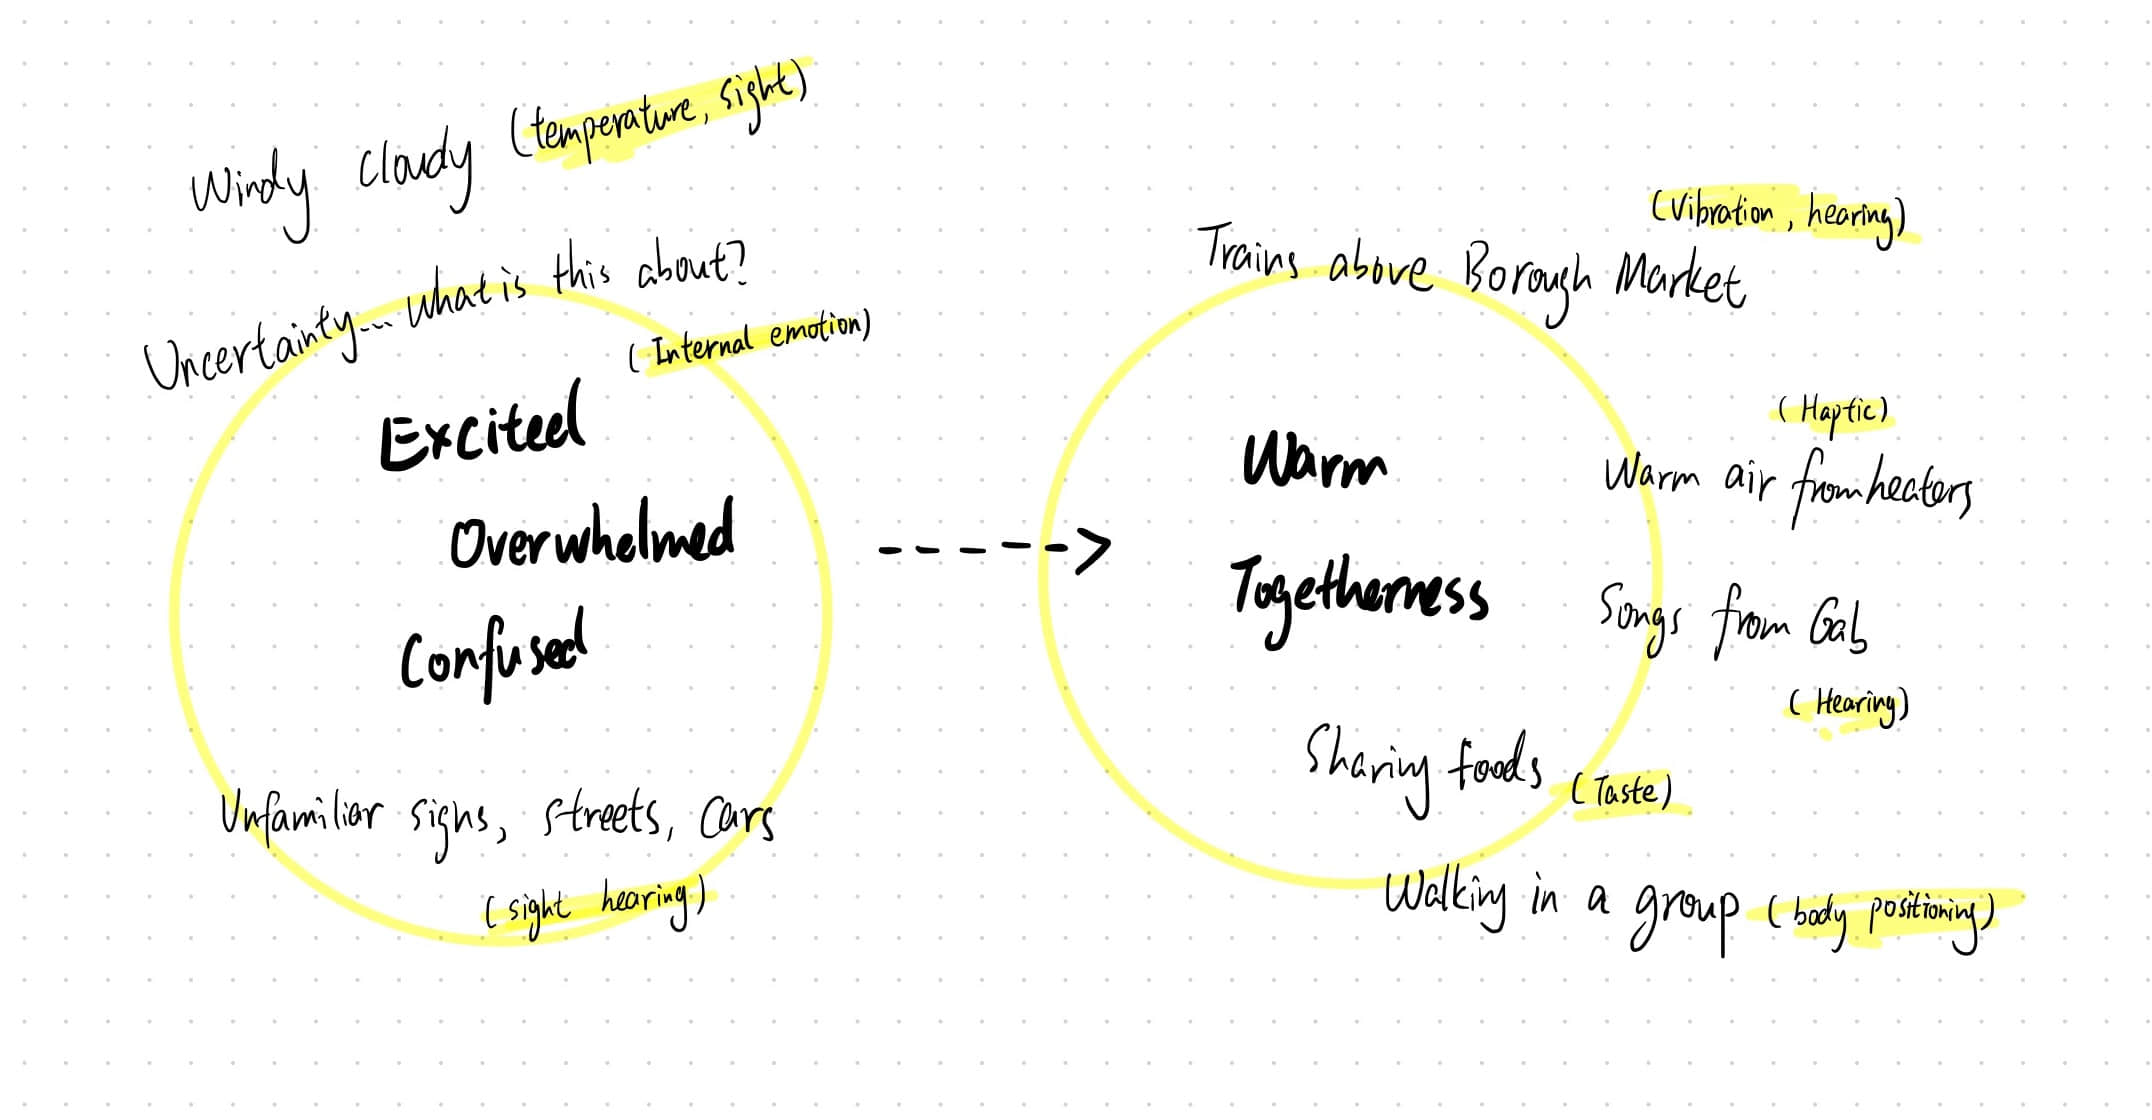 Windy cloudy (temperature, sight)
Uncertainty... what is this about?
(Internal emotion)
Excited
Overwhelmed
Confused
Unfamiliar signs, streets, cars
(sight hearing)
(Vibration, hearing)
Trains above Borough Market
Warm
Togetherness
(Haptic)
Warm air from heaters
Songs from Gab
(Hearing)
Sharing foods (Taste)
Walking in a group (body positioning)